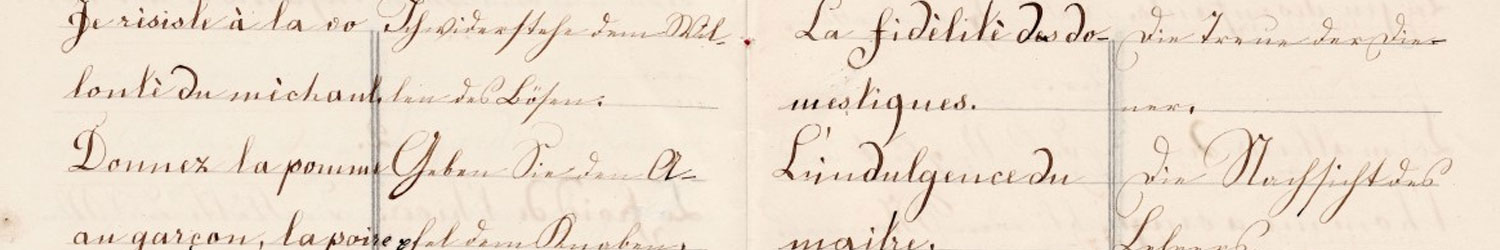 Je risiste à la vo
lontè du mèchant.
Donnez la pomme
au garçon, la poire
Ich widerstehe dem Wil-
len des Bösen.
Geben Sie den A-
pfel dem Knaben,
La fidèlitè des do-
mestiques.
L'indulgence du
maitre.
Die Treue der Die-
ner.
Die Nachsicht des
Lehrers